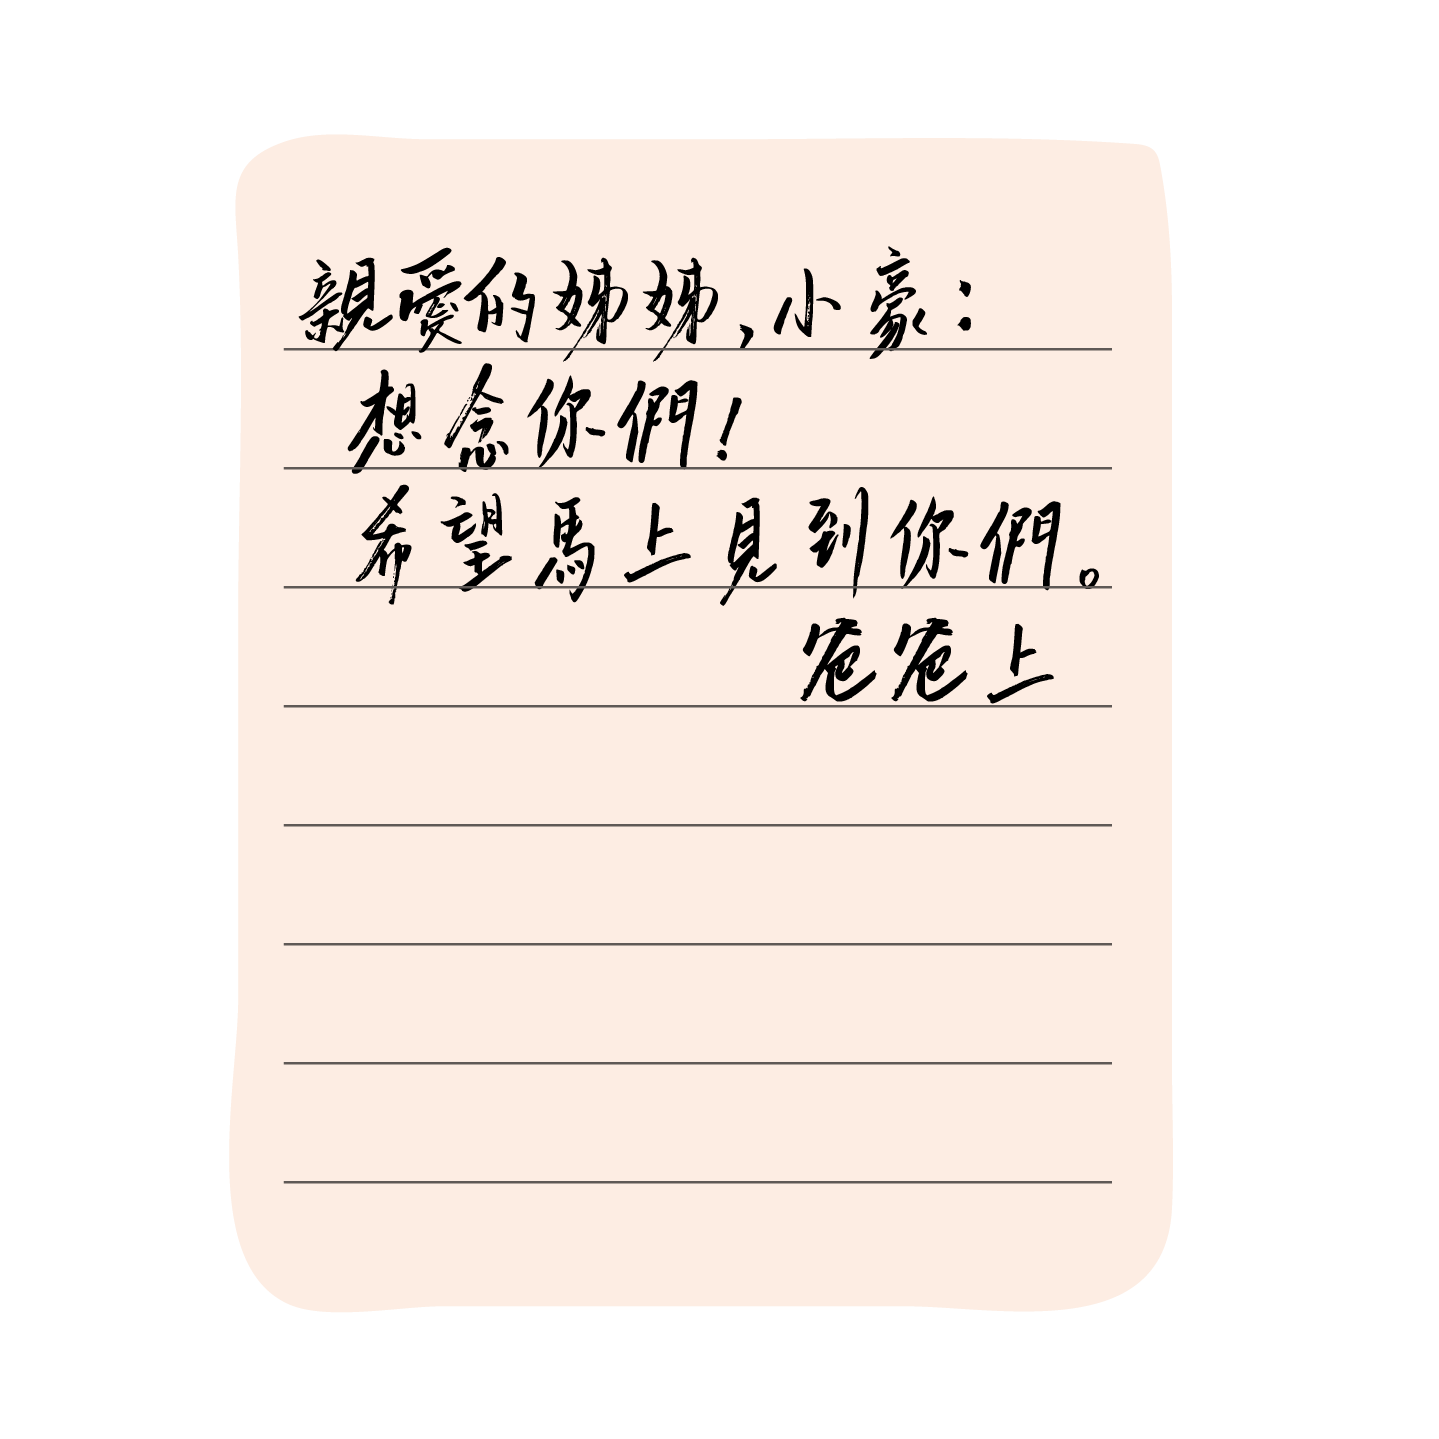 親愛的姊姊，小豪：
想念你們！
希望馬上見到你們。
爸爸上